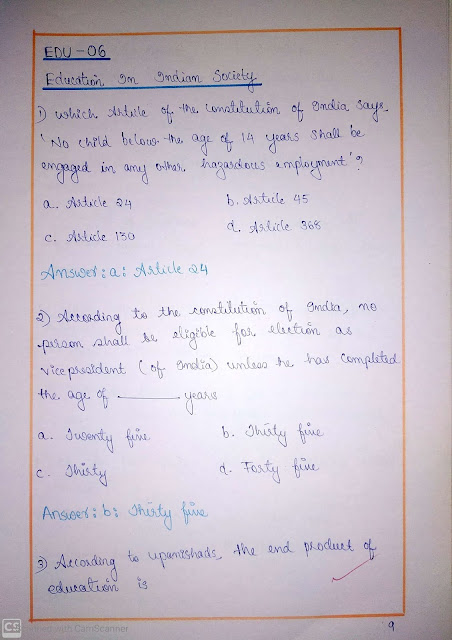 EDU - 06
Education In Indian Society
1) Which Article of the constitution of India says,
'No child below the age of 14 years shall be
engaged in any other hazardous employment'?
a. Article 24
b. Article 45
c. Article 130
d. Article 368
Answer: a: Article 24
2) According to the constitution of India, no
person shall be eligible for election as
vice president (of India) unless he has completed
the age of ______ years
a. Twenty five
b. Thirty five
c. Thirty
d. Forty five
Answer: b: Thirty five
3) According to upanishads, the end product of
education is
9
CS Scanned with CamScanner